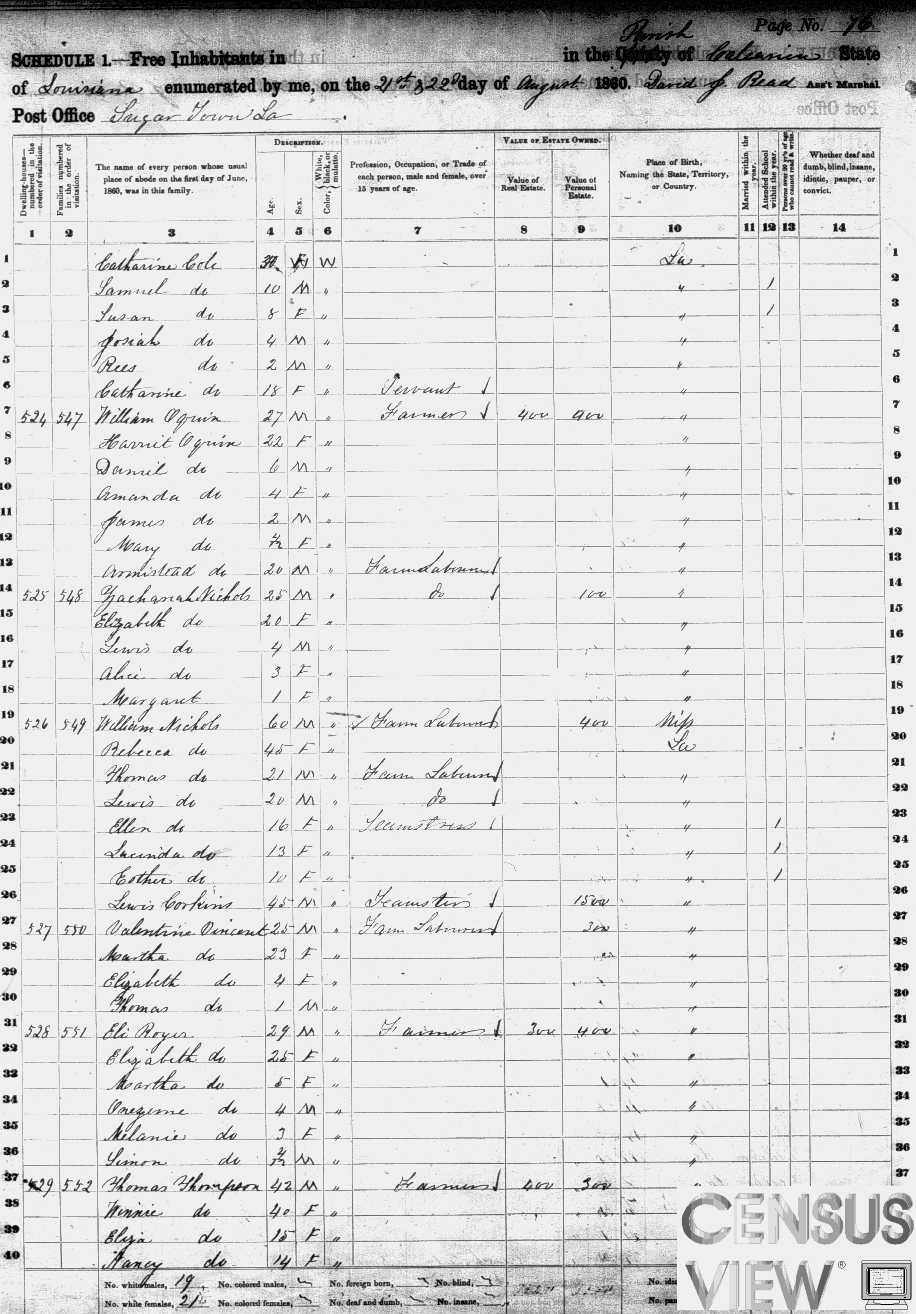 Page No. 76
SCHEDULE 1.—Free Inhabitants in in the Parish County of Calcasieu State
of Louisiana enumerated by me, on the 21st & 22d day of August 1860. David J Read Ass't Marshal
Post Office Sugar Town La
Dwelling-houses—numbered in the order of visitation.
Families numbered in the order of visitation.
The name of every person whose usual place of abode on the first day of June, 1860, was in this family.
DESCRIPTION.
Age.
Sex.
Color, White, black, or mulatto.
Profession, Occupation, or Trade of each person, male and female, over 15 years of age.
VALUE OF ESTATE OWNED.
Value of Real Estate.
Value of Personal Estate.
Place of Birth, Naming the State, Territory, or Country.
Married within the year.
Attended School within the year.
Persons over 20 y'rs of age who cannot read & write.
Whether deaf and dumb, blind, insane, idiotic, pauper, or convict.
1 2 3 4 5 6 7 8 9 10 11 12 13 14
1 Catharine Cole F W La 1
2 Samuel do 10 M " " / 2
3 Susan do 8 F " " / 3
4 Josiah do 4 M " " 4
5 Rees do 2 M " " 5
6 Catharine do 18 F " Servant " 6
7 524 547 William Oquin 27 M " Farmer 400 900 " 7
8 Harriet Oquin 22 F " " 8
9 Daniel do 6 M " " 9
10 Amanda do 4 F " " 10
11 James do 2 M " " 11
12 Mary do F " " 12
13 Armistead do 20 M " Farm Labourer " 13
14 525 548 Zachariah Nichols 25 M " do 100 " 14
15 Elizabeth do 20 F " 15
16 Lewis do 4 M " " 16
17 Alice do 3 F " " 17
18 Margaret 1 F " " 18
19 526 549 William Nichols 60 M " Farm Labourer 400 Miss 19
20 Rebecca do 45 F " La 20
21 Thomas do 21 M " Farm Labourer " 21
22 Lewis do 20 M " do " 22
23 Ellen do 16 F " Seamstress " / 23
24 Lucinda do 13 F " " / 24
25 Esther do 10 F " " / 25
26 Lewis Corkins 45 M " 1500 " 26
27 527 550 Valentine Vincent 25 M " Farm Labourer 300 " 27
28 Martha do 23 F " " 28
29 Elizabeth do 4 F " " 29
30 Thomas do 1 M " " 30
31 528 551 Eli Royer 29 M " Farmer 300 400 " 31
32 Elizabeth do 25 F " " 32
33 Martha do 5 F " " 33
34 Onezime do 4 M " " 34
35 Melanie do 3 F " " 35
36 Simon do M " " 36
37 529 552 Thomas Thompson 42 M " Farmer 400 300 " 37
38 Winnie do 40 F "
39 Eliza do 15 F "
40 Nancy do 14 F "
No. white males, 19 No. colored males, No. foreign born, No. blind,
No. white females, 21 No. colored females, No. deaf and dumb, No. insane,
CENSUS
VIEW®